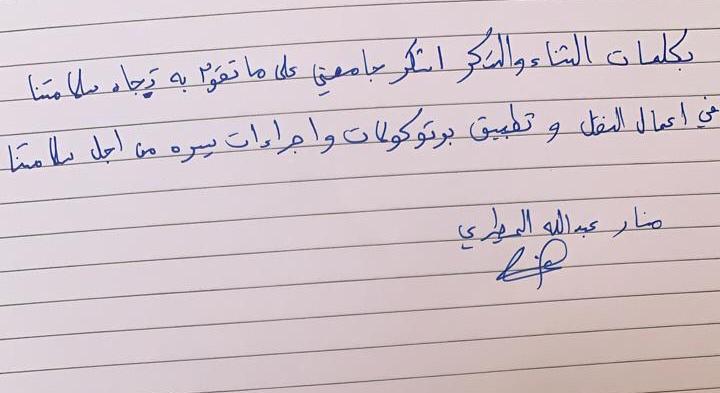 بكلمات الثناء والشكر اشكر جامعتي على ما تقوم به تجاه سلامتنا
في اعمال النقل و تطبيق بوتوكولات واجراءات يسره من اجل سلامتنا
منار عبدالله المطيري